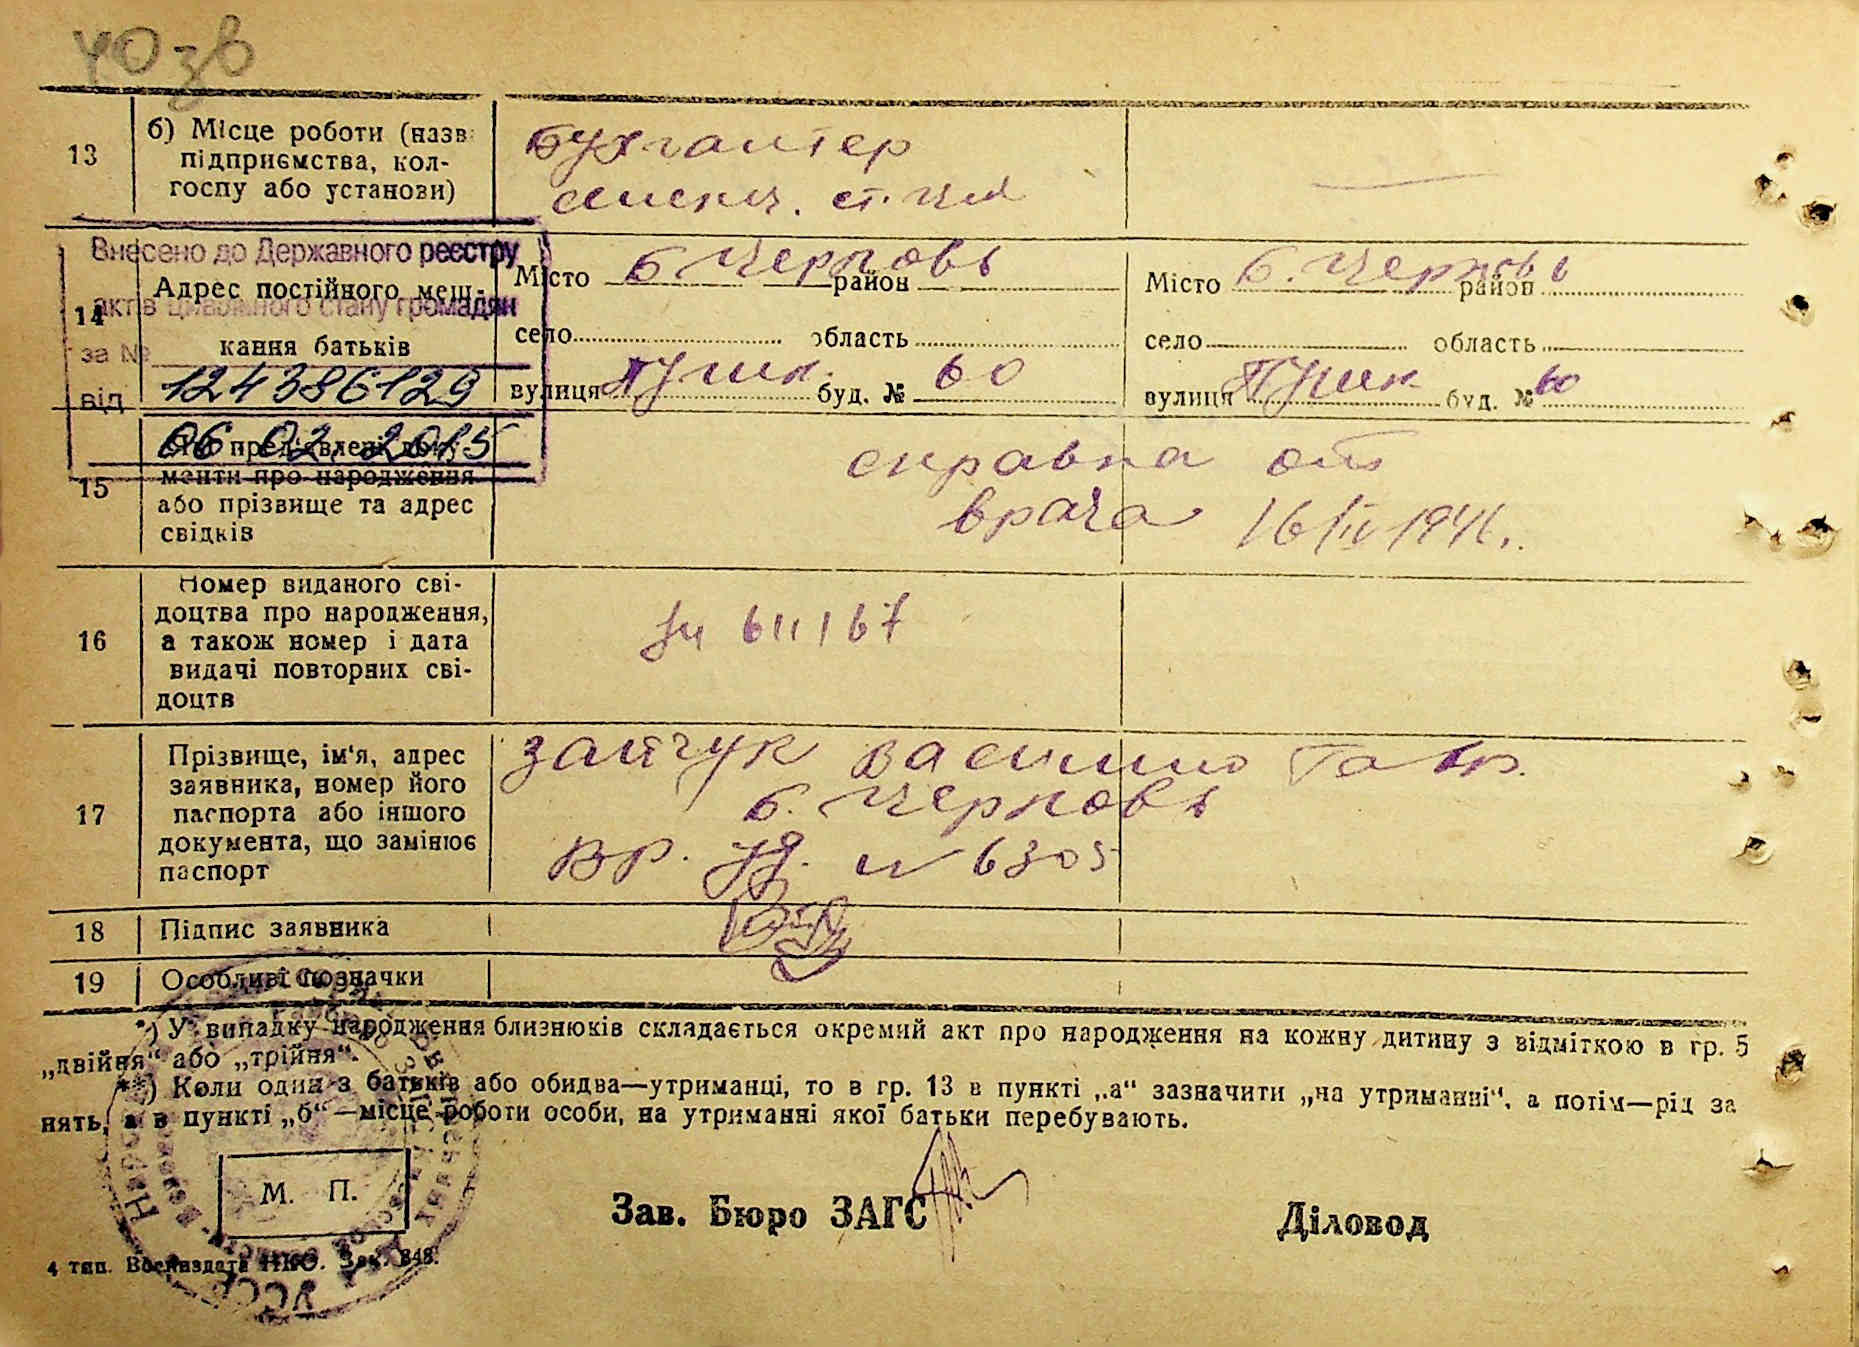 40 зв
13
б) Місце роботи (назв
підприємства, кол-
госпу або установи)
бухгалтер
Внесено до Державного реєстру
актів цивільного стану громадян
за №
124386129
від
06.02.2015
14
Адрес постійного меш-
кання батьків
Місто Б. Черковь район
село область
вулиця Пушк. буд. № 60
Місто Б. Черковь район
село область
вулиця Пушк. буд. № 60
15
менти про народження
або прізвище та адрес
свідків
справка от
врача 16/IV 1946.
16
Номер виданого сві-
доцтва про народження,
а також номер і дата
видачі повторних сві-
доцтв
611167
17
Прізвище, ім'я, адрес
заявника, номер його
паспорта або іншого
документа, що замінює
паспорт
Зайчук Василий Гавр.
Б. Черковь
вр. уд. № 6305
18
Підпис заявника
19
Особливі позначки
*) У випадку народження близнюків складається окремий акт про народження на кожну дитину з відміткою в гр. 5
„двійня“ або „трійня“.
**) Коли один з батьків або обидва—утриманці, то в гр. 13 в пункті „а“ зазначити „на утриманні“, а потім—рід за
нять, а в пункті „б“—місце роботи особи, на утриманні якої батьки перебувають.
М. П.
Зав. Бюро ЗАГС
Діловод
4 тип. Воениздата НКО. Зак. 848.
УССР